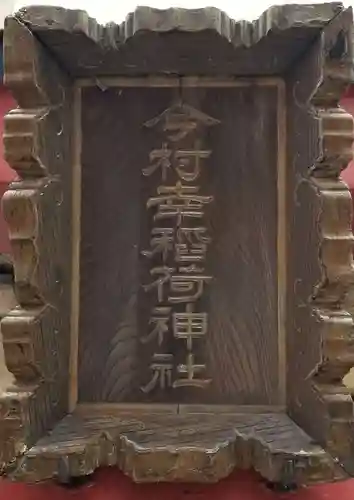 今村幸稲荷神社